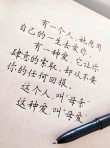 有一个人，她愿用
自己的一生去爱你
有一种爱，它让你
肆意的索取，却从不要
你的任何回报，
这个人，叫“母亲”
这种爱叫“母爱”